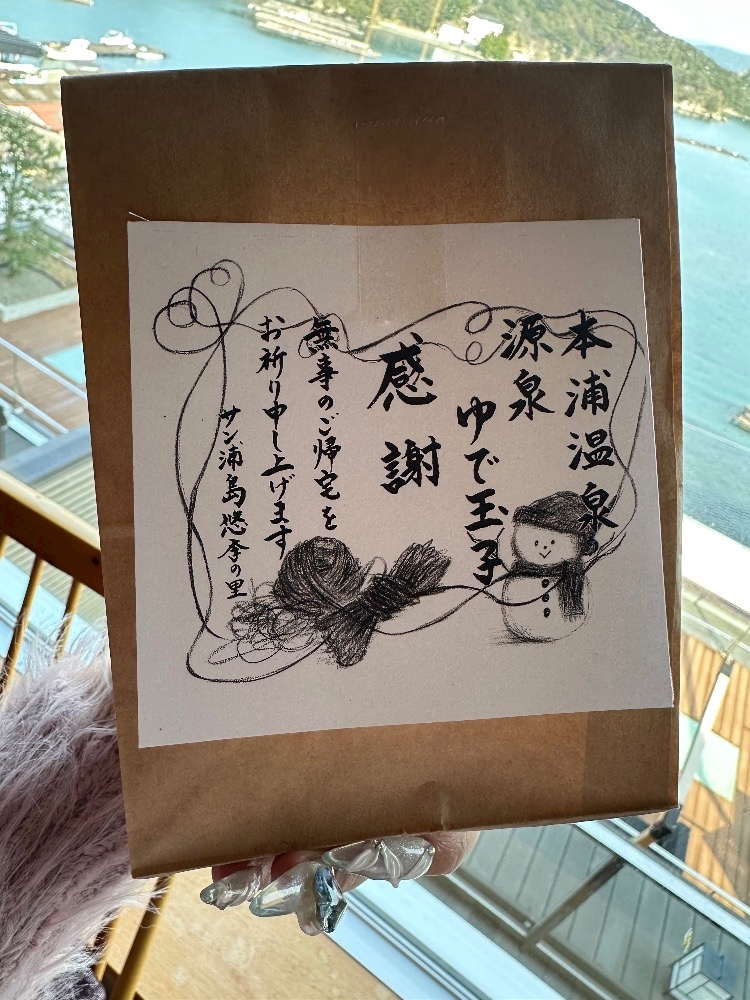 本浦温泉の
源泉
ゆで玉子
感謝
無事のご帰宅を
お祈り申し上げます
サン浦島悠季の里